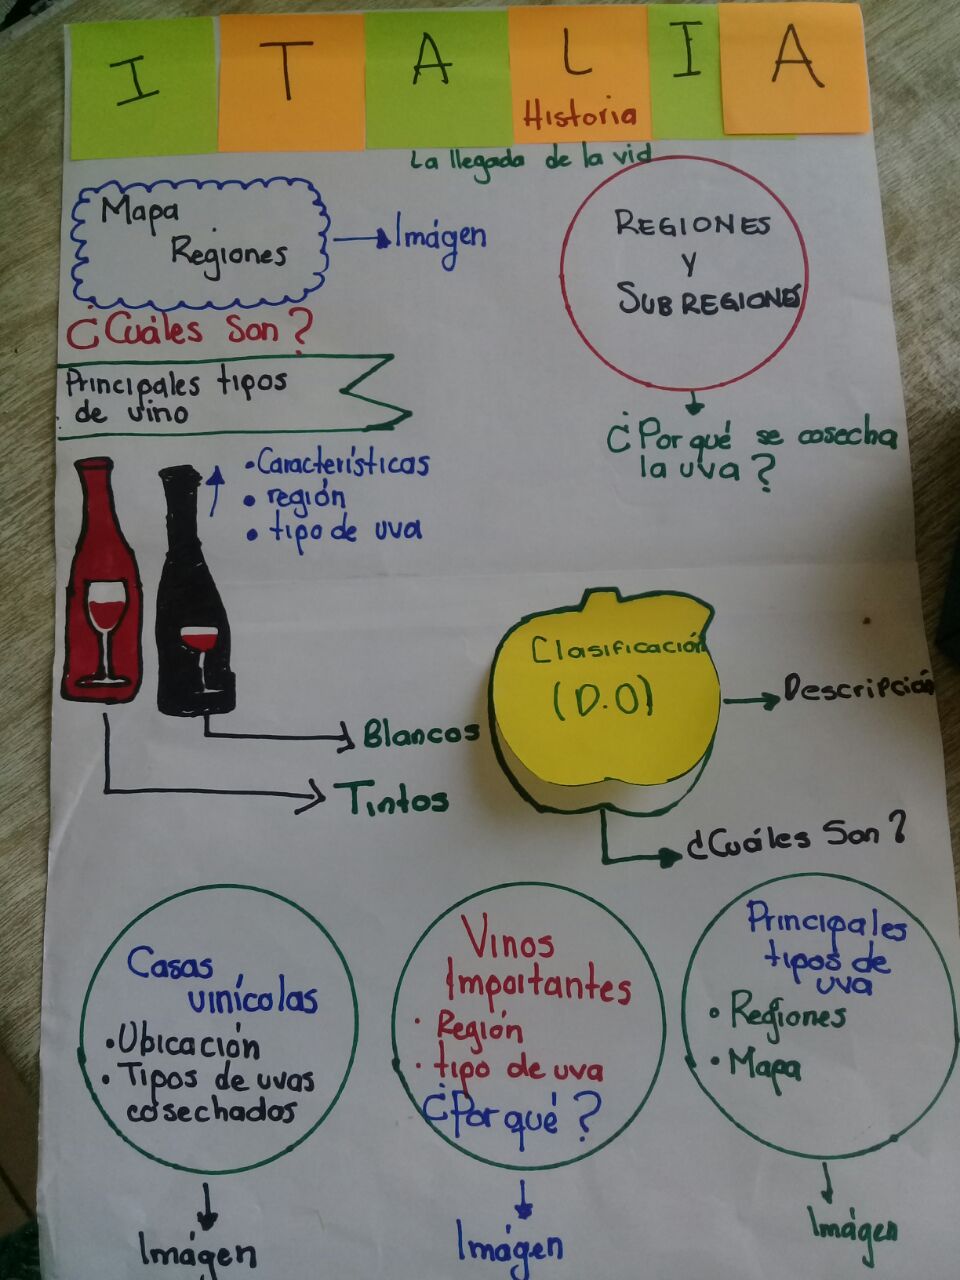 I T A L I A
Historia
La llegada de la vid
Mapa
Regiones
Imágen
¿Cuáles Son?
REGIONES
Y
SUBREGIONES
¿Por qué se cosecha
la uva?
Principales tipos
de vino
• Características
• región
• tipo de uva
Blancos
Tintos
Clasificación
(D.O)
Descripción
¿Cuáles Son?
Casas
vinícolas
• Ubicación
• Tipos de uvas
cosechados
Imágen
Vinos
Importantes
• Región
• tipo de uva
¿Por qué?
Imágen
Principales
tipos de
uva
• Regiones
• Mapa
Imágen